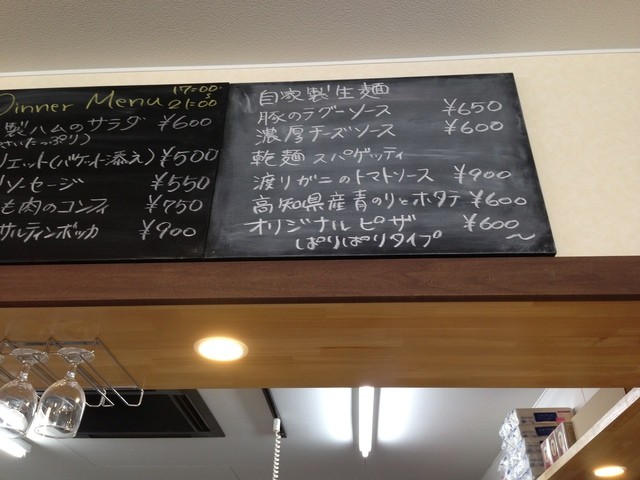 Dinner Menu 17:00
〜
21:00
製ハムのサラダ ¥600
さいたっぷり)
リエット(バゲット添え) ¥500
ソーセージ ¥550
も肉のコンフィ ¥750
サルティンボッカ ¥900
自家製生麺
豚のラグーソース ¥650
濃厚チーズソース ¥600
乾麺 スパゲッティ
渡りガニのトマトソース ¥900
高知県産青のりとホタテ ¥600
オリジナルピザ ¥600
ぱりぱりタイプ 〜